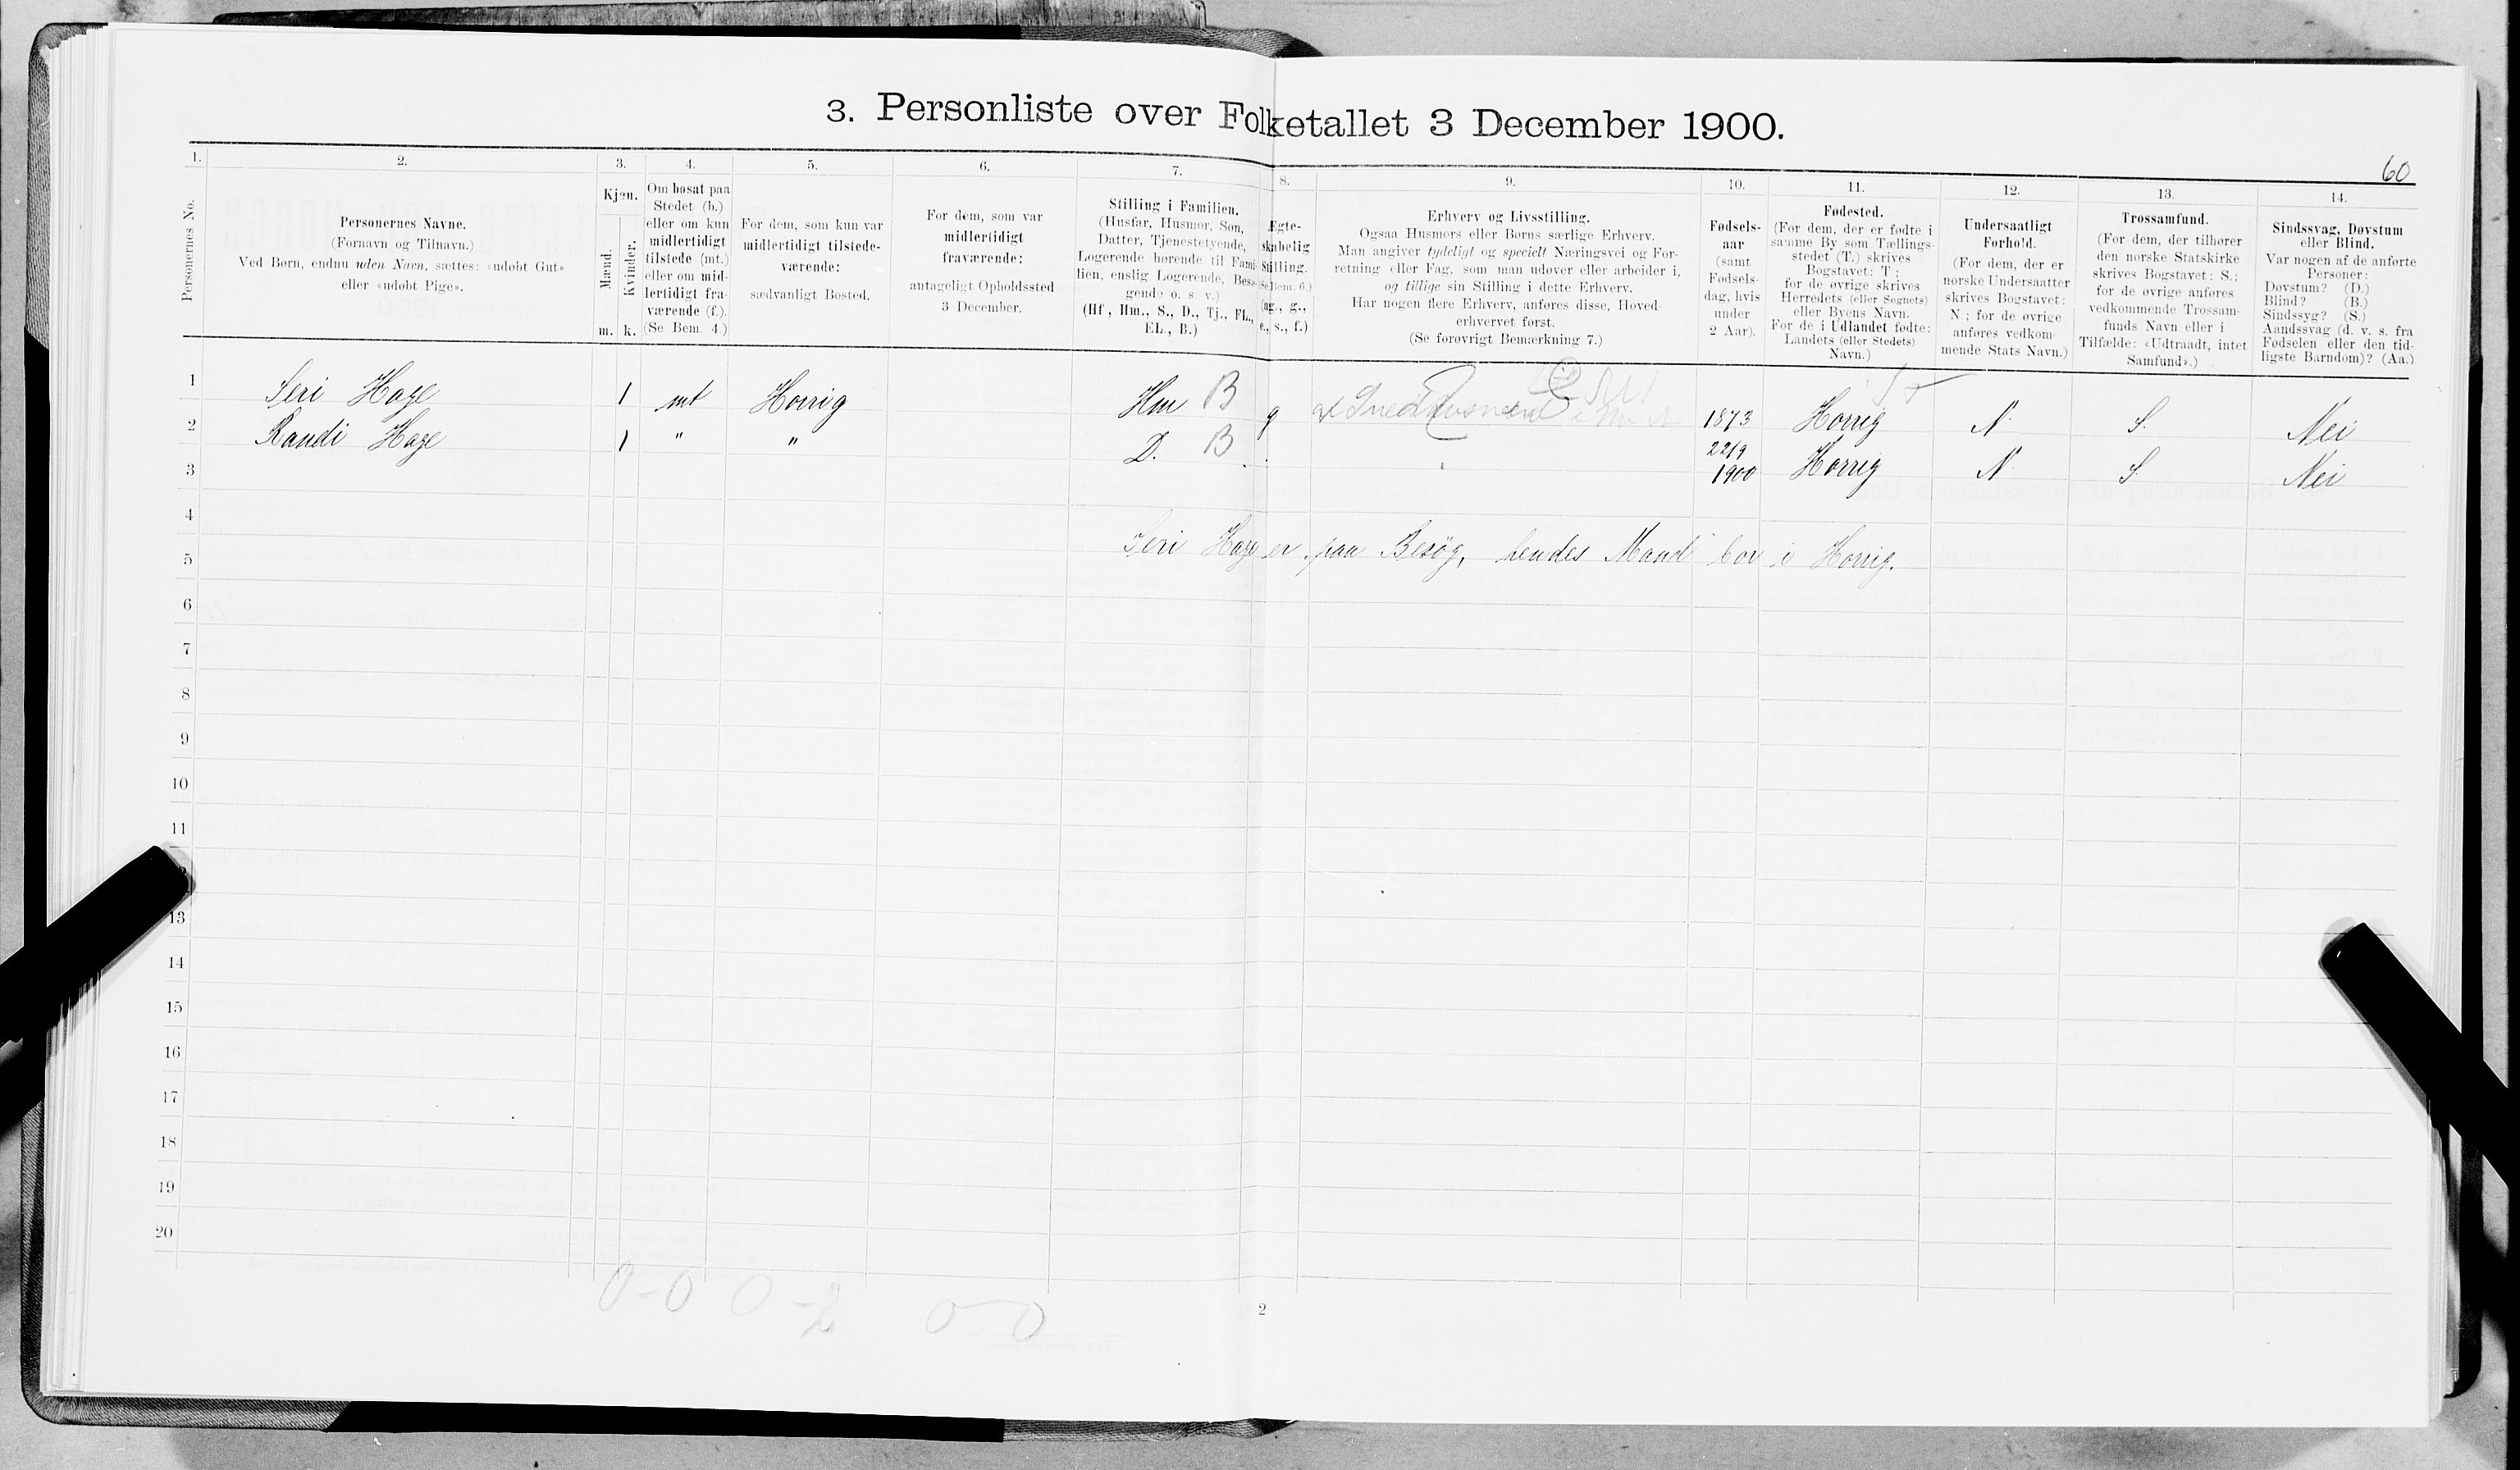 3. Personliste over Folketallet 3 December 1900.
60
1. 2. 3. 4. 5. 6. 7. 8. 9. 10. 11. 12. 13. 14.
Personernes No.
Personernes Navne.
(Fornavn og Tilnavn.)
Ved Børn, endnu uden Navn, sættes: «udøbt Gut»
eller «udøbt Pige».
Kjøn.
Mænd.
Kvinder.
m. k.
Om bosat paa
Stedet (b.)
eller om kun
midlertidigt
tilstede (mt.)
eller om mid-
lertidigt fra-
værende (f.).
(Se Bem. 4.)
For dem, som kun var
midlertidigt tilstede-
værende:
sædvanligt Bosted.
For dem, som var
midlertidigt
fraværende:
antageligt Opholdssted
3 December.
Stilling i Familien.
(Husfar, Husmor, Søn,
Datter, Tjenestetyende,
Logerende hørende til Fami-
lien, enslig Logerende, Besø-
gende o. s. v.)
(Hf., Hm., S., D., Tj., FL.,
EL., B.)
Ægte-
skabelig
Stilling.
(Se Bem. 6.)
(ug., g.,
e., s., f.)
Erhverv og Livsstilling.
Ogsaa Husmors eller Børns særlige Erhverv.
Man angiver tydeligt og specielt Næringsvei og For-
retning eller Fag, som man udøver eller arbeider i,
og tillige sin Stilling i dette Erhverv.
Har nogen flere Erhverv, anføres disse, Hoved-
erhvervet først.
(Se forøvrigt Bemærkning 7.)
Fødsels-
aar
(samt
Fødsels-
dag, hvis
under
2 Aar).
Fødested.
(For dem, der er fødte i
samme By som Tællings-
stedet (T.) skrives
Bogstavet: T.;
for de øvrige skrives
Herredets (eller Sognets)
eller Byens Navn.
For de i Udlandet fødte:
Landets (eller Stedets)
Navn.)
Undersaatligt
Forhold.
(For dem, der er
norske Undersaatter
skrives Bogstavet:
N.; for de øvrige
anføres vedkom-
mende Stats Navn.)
Trossamfund.
(For dem, der tilhører
den norske Statskirke
skrives Bogstavet: S.;
for de øvrige anføres
vedkommende Trossam-
funds Navn eller i
Tilfælde: «Udtraadt, intet
Samfund».)
Sindssvag, Døvstum
eller Blind.
Var nogen af de anførte
Personer:
Døvstum? (D.)
Blind? (B.)
Sindssyg? (S.)
Aandssvag (d. v. s. fra
Fødselen eller den tid-
ligste Barndom)? (Aa.)
1 Seri Hage 1 mt Horrig Hm B g 1873 Horrig N. S. Nei
2 Randi Hage 1 " " D. B 22/9 1900 Horrig N. S. Nei
3
4
Seri Hage er paa Besøg, hendes Mand bor i Horrig.
5
6
7
8
9
10
11
13
14
15
16
17
18
19
20
0-0 0-2 0-0
2